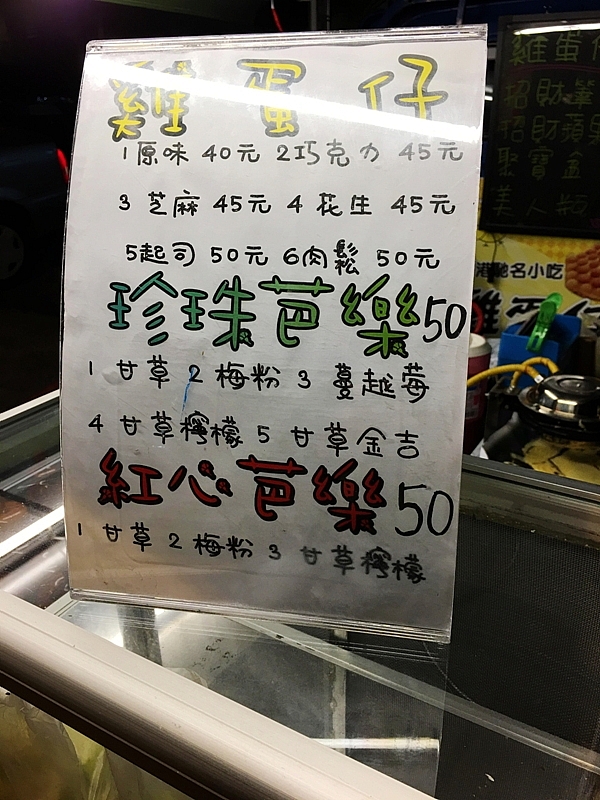 雞蛋仔
1原味 40元 2巧克力 45元
3 芝麻 45元 4 花生 45元
5起司 50元 6肉鬆 50元
珍珠芭樂50
1 甘草 2 梅粉 3 蔓越莓
4 甘草檸檬 5 甘草金吉
紅心芭樂50
1 甘草 2 梅粉 3 甘草檸檬
雞蛋仔
招財
招財蘋果
聚寶盒
美人瓶
港馳名小吃
雞蛋仔